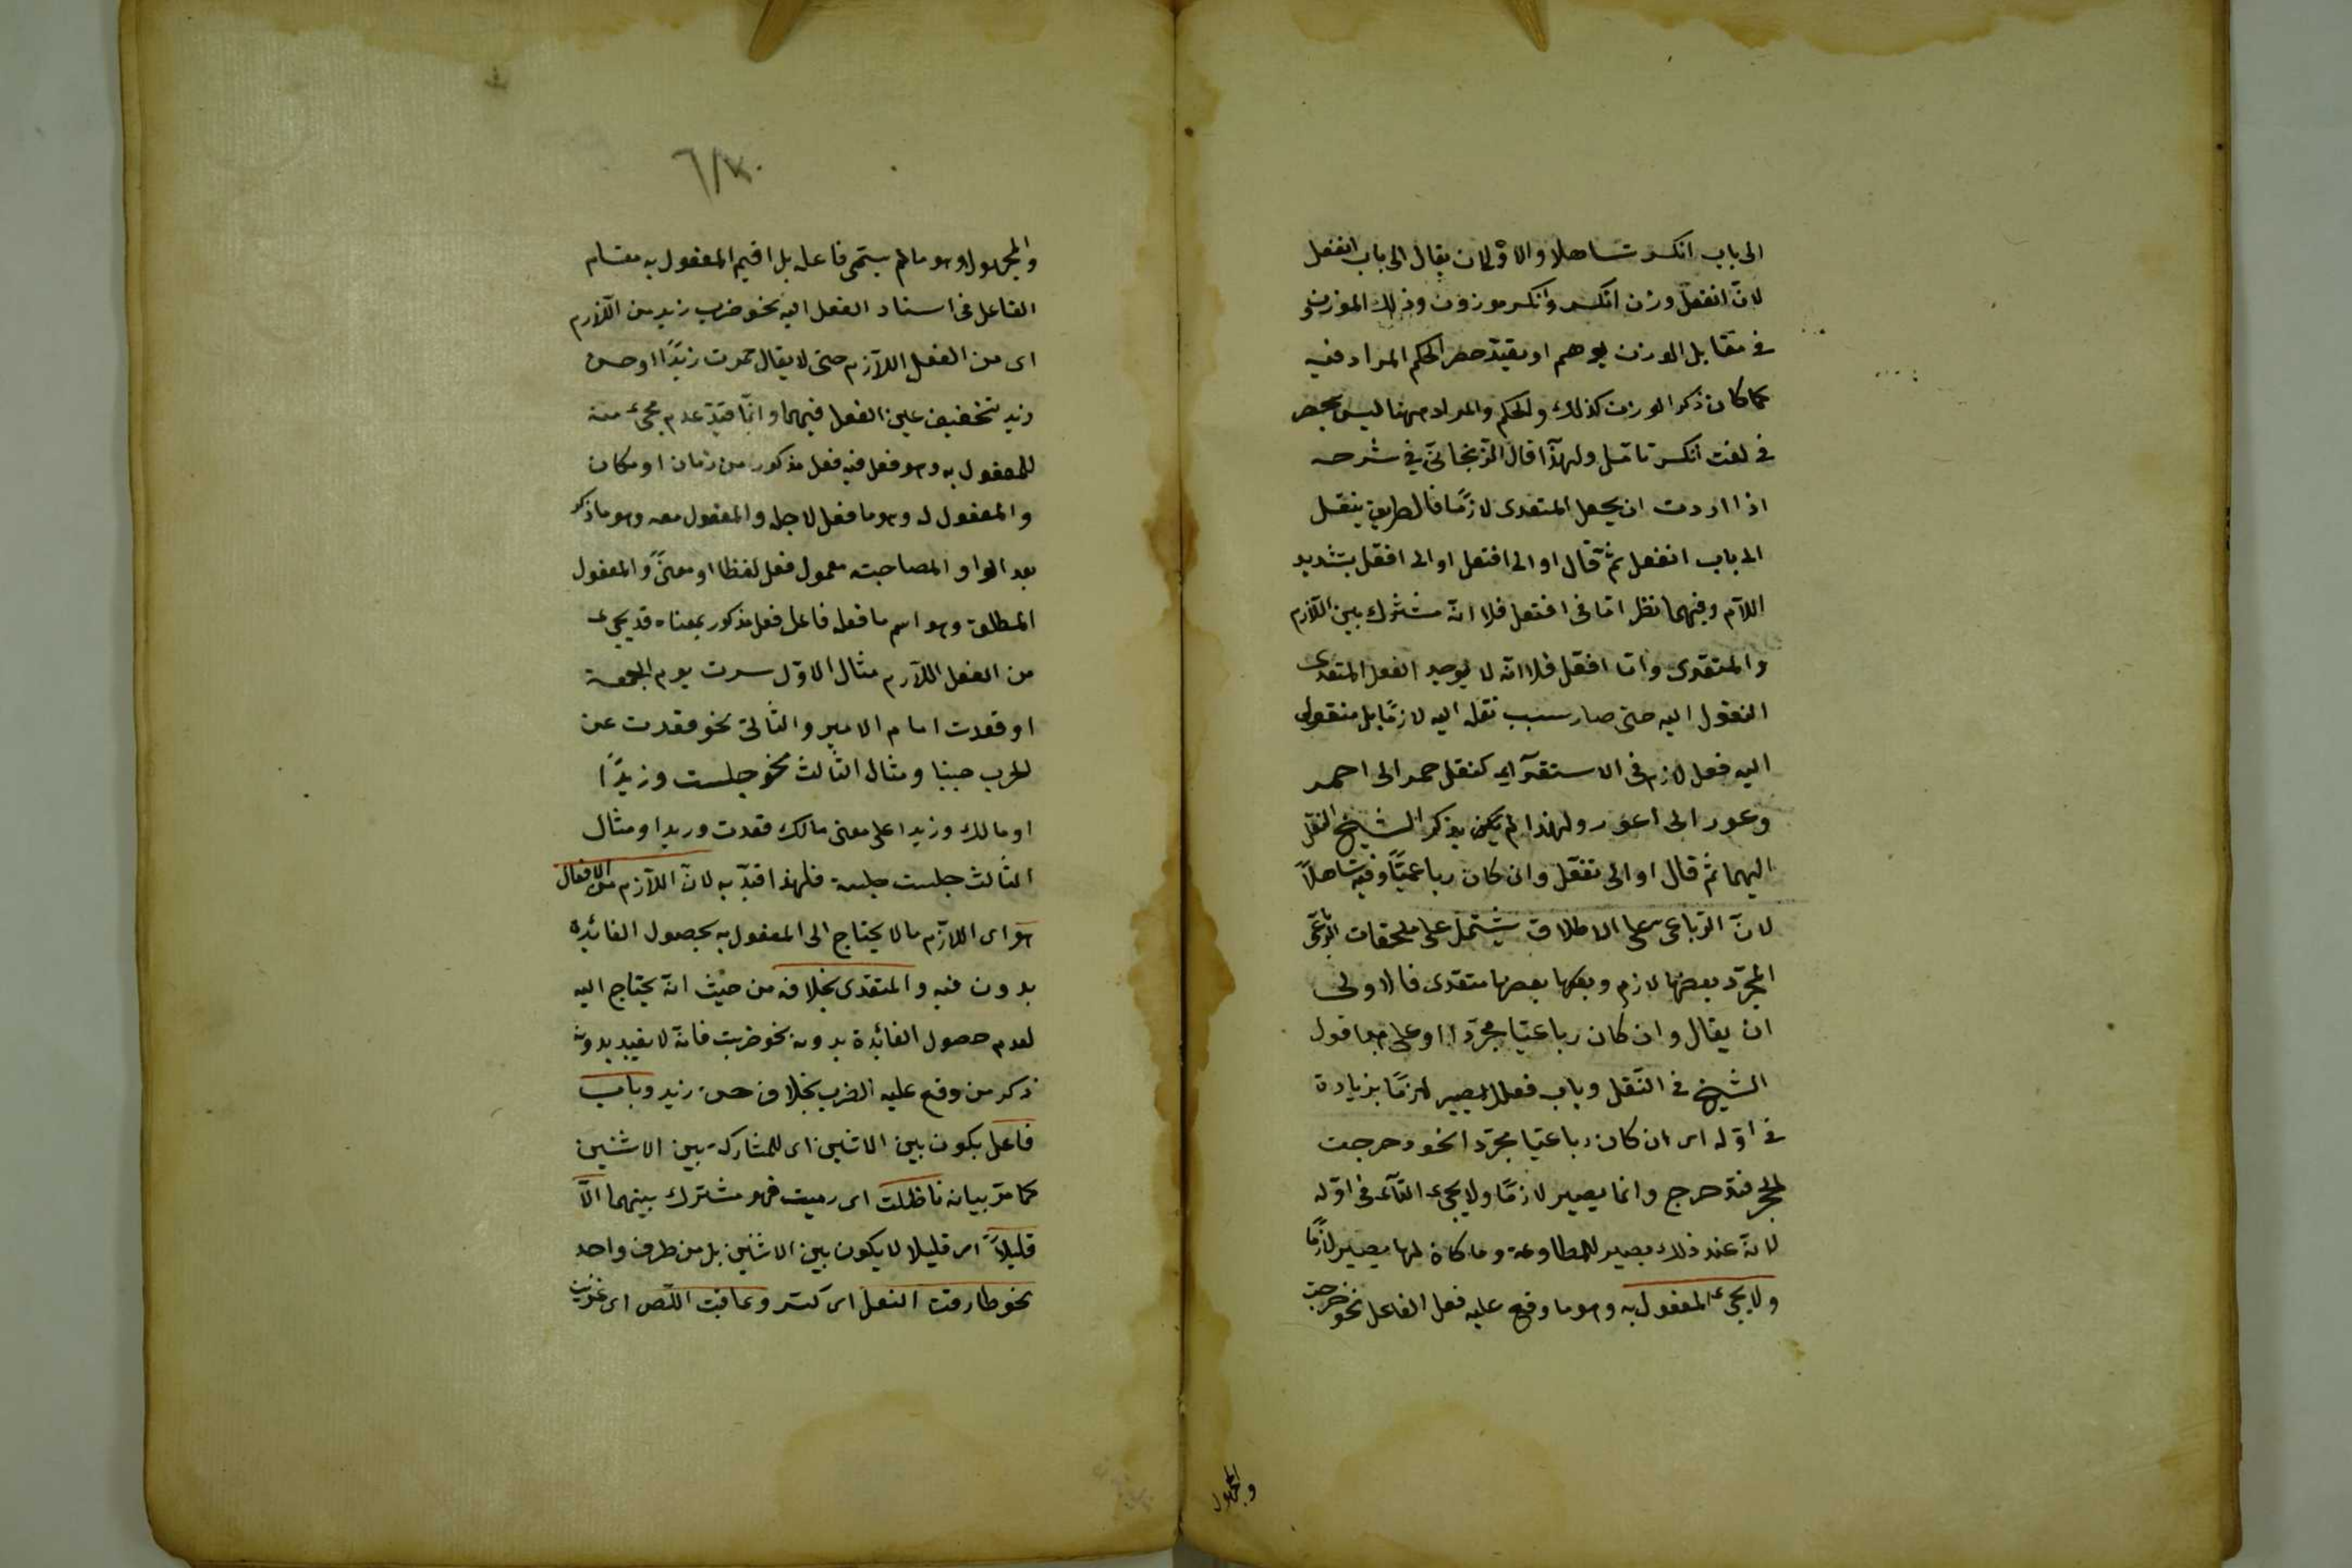 الى باب انكسر تساهلا والاولى ان يقال الى باب انفعل
لانّ انفعل وزن انكسر وانكسر موزون وذلك الموزون
فى مقابل الوزن يوهم او يقيد حصر الحكم المراد فيه
كما كان ذكر الوزن كذلك والحكم والمراد ههنا ليس بحصر
فى لفت انكسر تامّل ولهذا قال الزنجانى فى شرحه
اذا اردت ان يجعل المتعدى لازمًا فالطريق ينقل
الى باب انفعل ثمّ قال او الى افتعل او الى افعلّ بتشديد
اللآم وفيهما نظر امّا فى افتعل فلا انّه مشترك بين اللآزم
والمتعدى وامّا افعلّ فلا انّه لا يوجد الفعل المتعدى
النقول اليه حتى صار سبب نقله اليه لازمًا بل منقولى
اليه فعل لازم فى الاستقرآء كنقل حمر الى احمر
وعور الى اعور ولهذا لم يكن يذكر الشيخ النقل
اليهما ثم قال او الى تفعّل وان كان رباعيًّا وفيه تساهلاً
لانّ الرّباعى على الاطلاق يشتمل على ملحقات الرباعى
المجرّد بعضها لازم وبعضها متعدى فالاولى
ان يقال وان كان رباعيّا مجرّدا او على قول
الشيخ فى النّقل وباب فعلل يصير لازمًا بزيادة
فى اوّله اى ان كان رباعيّا مجرّدا نحو دحرجت
الحجر فتدحرج وانما يصير لازمًا ولا يجىء التآء فى اوّله
لانّه عند ذلك يصير للمطاوعة وما كان لها يصير لازمًا
ولا يجىء المفعول به وهو ما وقع عليه فعل الفاعل نحو ضربت
والمجهول
٦/٣٠
والمجهول وهو مالم يسمّى فاعله بل اقيم المفعول به مقام
الفاعل فى اسناد الفعل اليه نحو ضرب زيد من اللآزم
اى من الفعل اللآزم حتى لا يقال حمرت زيدًا او حسن
زيد بتخفيف عين الفعل فيهما وانّما قيّد عدم مجىء منه
للمفعول به وهو فعل فيه فعل مذكور من زمان او مكان
والمفعول له وهو ما فعل لاجله والمفعول معه وهو ما ذكر
بعد الواو المصاحبته معمول فعل لفظا او معنىً والمفعول
المطلق وهو اسم ما فعله فاعل فعل مذكور بمعناه قد يجىء
من الفعل اللآزم مثال الاوّل سرت يوم الجمعة
او قعدت امام الامير والثّانى نحو قعدت عن
الحرب جبنا ومثال الثّالث نحو جلست وزيدًا
او مالك وزيدا على معنى مالك قعدت وزيدا ومثال
الثالث جلست جلسة فلهذا قيّد به لانّ اللآزم من الافعال
هو اى اللآزم مالا يحتاج الى المفعول به بحصول الفائدة
بدون فيه والمتعدى بخلافه من حيث انّه يحتاج اليه
لعدم حصول الفائدة بدونه نحو ضربت فانّه لا يفيد بدونه
ذكر من وقع عليه الضرب بخلاف حسن زيد وباب
فاعل يكون بين الاثنين اى للمشاركة بين الاثنين
كما مرّ بيانه ناضلت اى رميت فهو مشترك بينهما الّا
قليلاً اى قليلا لا يكون بين الاثنين بل من طرف واحد
نحو طارقت النعل اى كسّر وعاقبت اللّص اى عزّبت